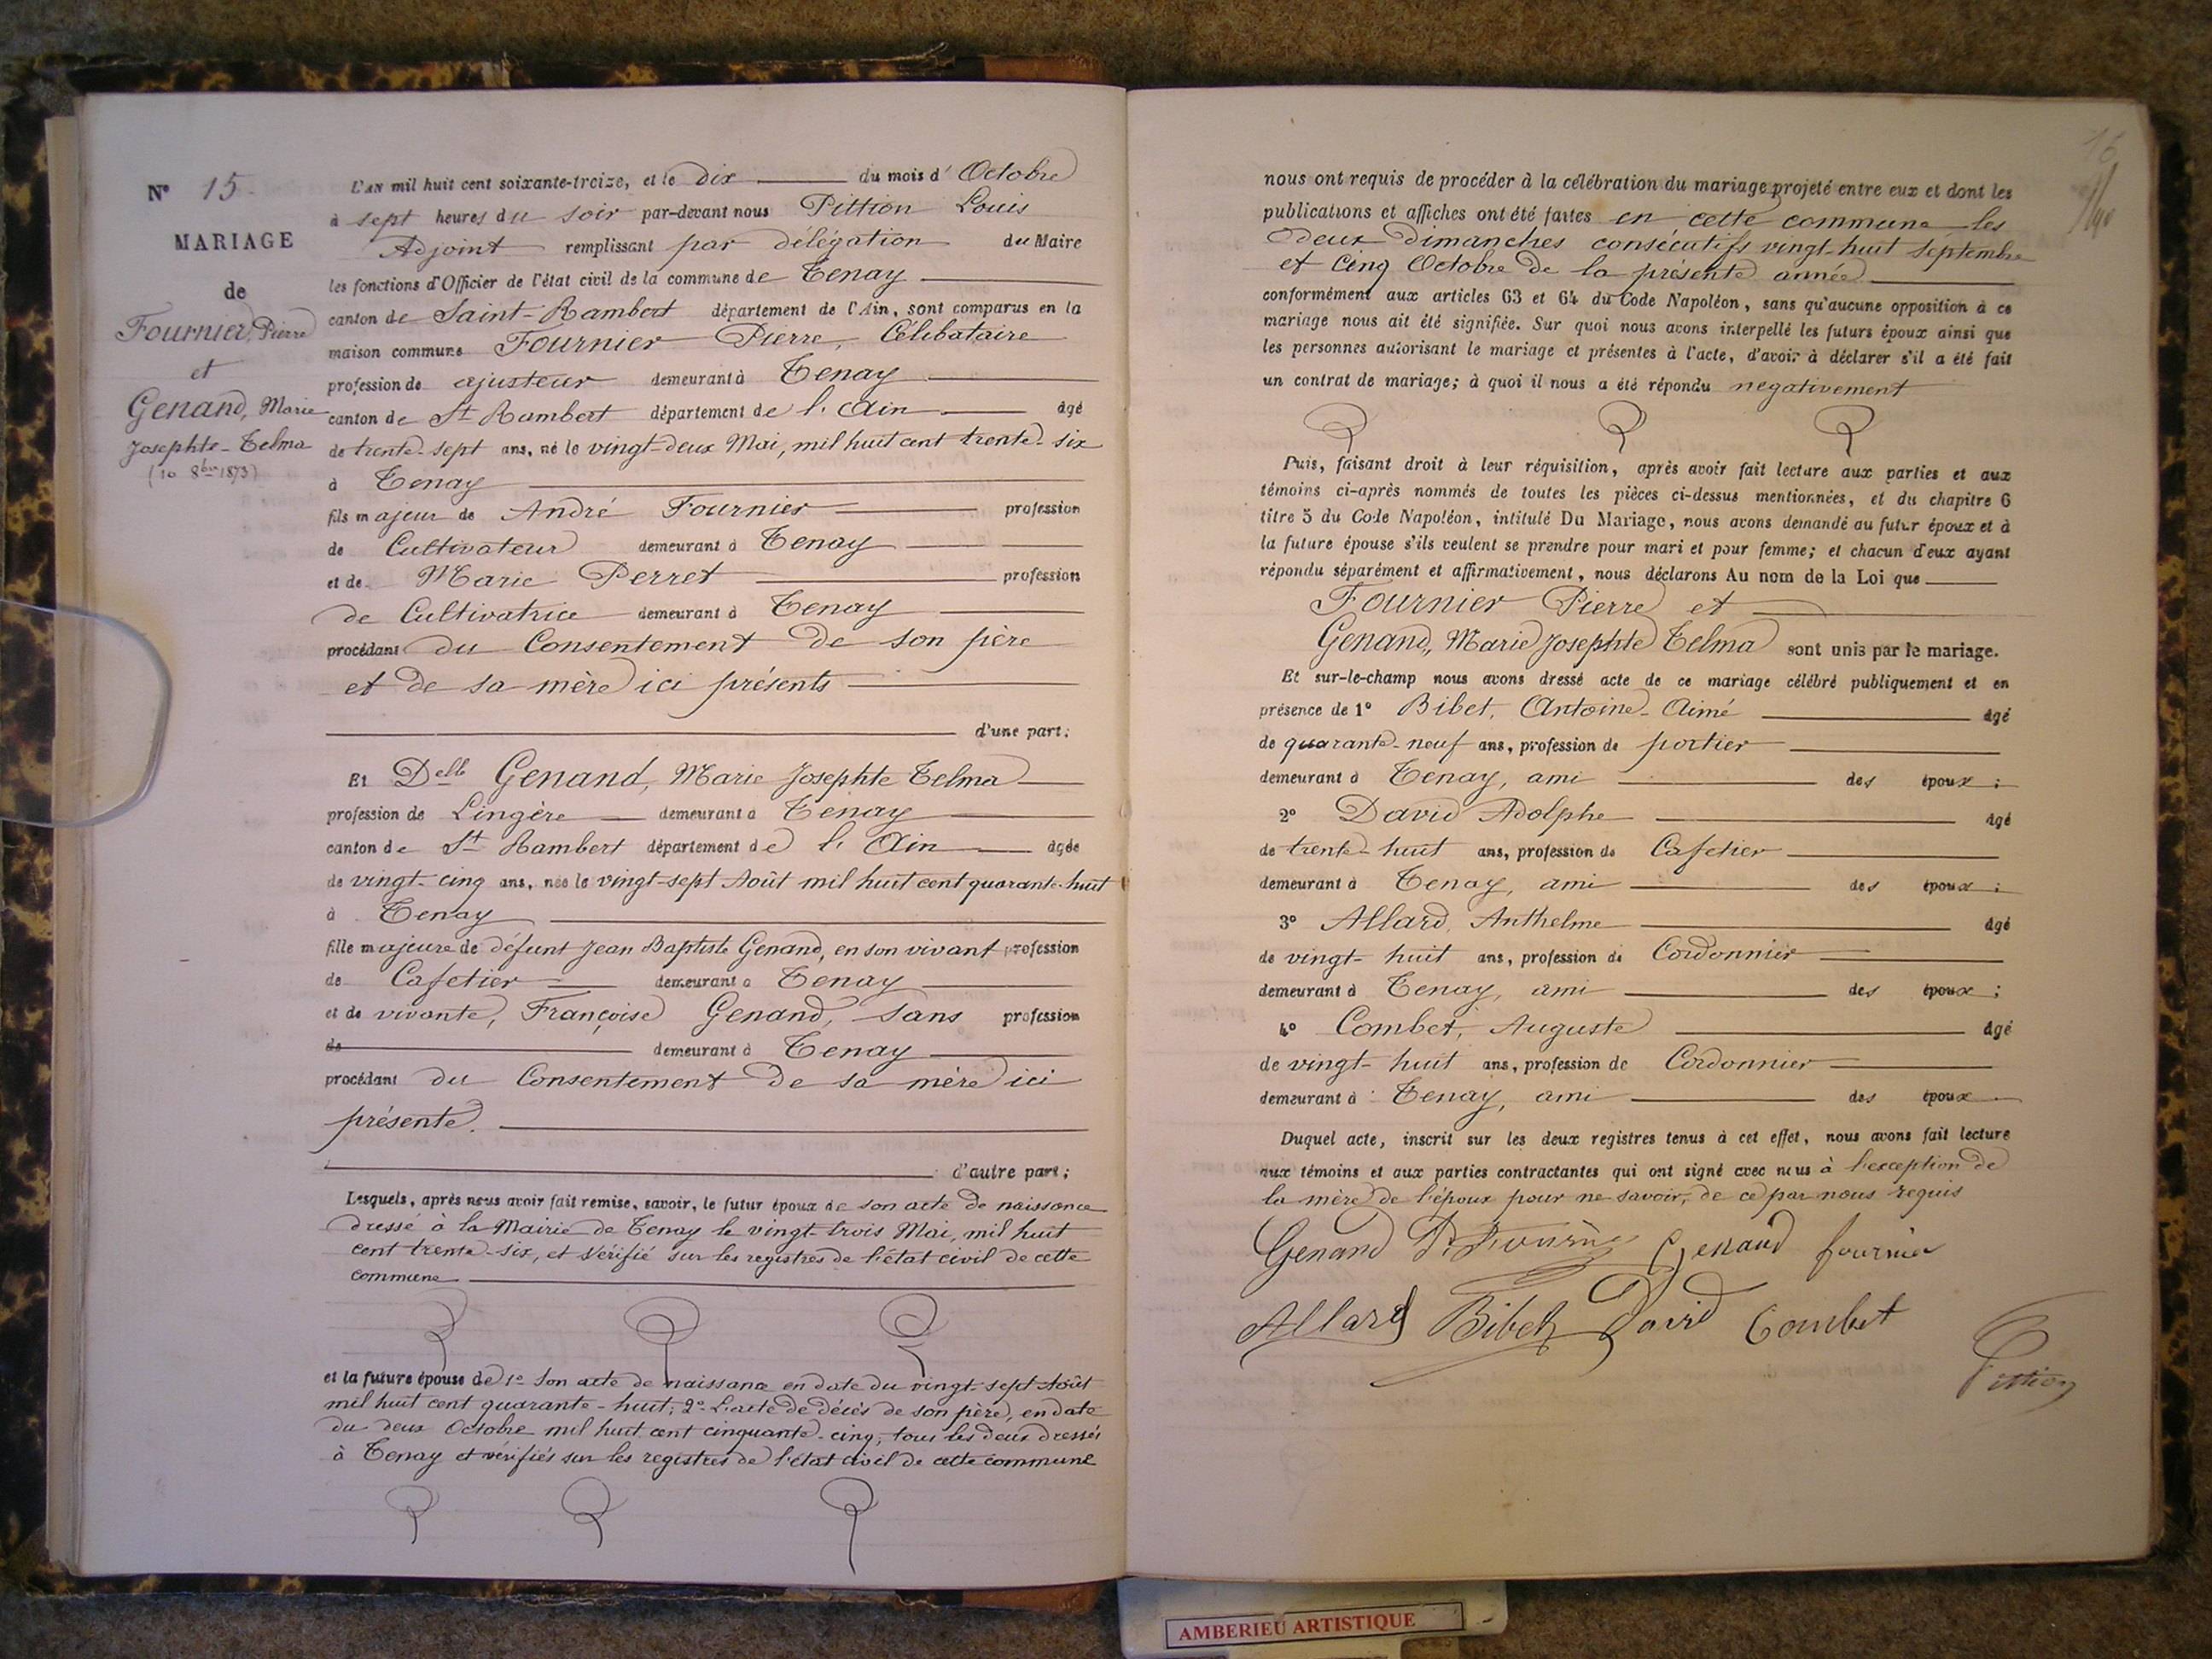 N° 15
MARIAGE
de
Fournier, Pierre
et
Genand, Marie
Josephte-Telma
(10 8bre 1873)
L'AN mil huit cent soixante-treize, et le dix du mois d'Octobre
à sept heures du soir par-devant nous Pittion Louis
Adjoint remplissant par délégation du Maire
les fonctions d'Officier de l'état civil de la commune de Tenay
canton de Saint-Rambert département de l'Ain, sont comparus en la
maison commune Fournier Pierre, Célibataire
profession de ajusteur demeurant à Tenay
canton de St Rambert département de l'Ain âgé
de trente-sept ans, né le vingt-deux Mai, mil huit cent trente-six
à Tenay
fils majeur de André Fournier profession
de Cultivateur demeurant à Tenay
et de Marie Perret profession
de Cultivatrice demeurant à Tenay
procédant du Consentement de son père
et de sa mère ici présents
d'une part;
Et Delle Genand, Marie Josephte Telma
profession de Lingère demeurant à Tenay
canton de St Rambert département de l'Ain âgée
de vingt-cinq ans, née le vingt-sept Août mil huit cent quarante-huit
à Tenay
fille majeure de défunt Jean Baptiste Genand, en son vivant profession
de Cafetier demeurant à Tenay
et de vivante, Françoise Genand, sans profession
de demeurant à Tenay
procédant du Consentement de sa mère ici
présente.
d'autre part;
Lesquels, après nous avoir fait remise, savoir, le futur époux de son acte de naissance
dressé à la Mairie de Tenay le vingt-trois Mai, mil huit
cent trente-six, et vérifié sur les registres de l'état civil de cette
commune
et la future épouse de 1° son acte de naissance en date du vingt-sept Août
mil huit cent quarante-huit; 2° L'acte de décès de son père, en date
du deux Octobre mil huit cent cinquante-cinq, tous les deux dressés
à Tenay et vérifiés sur les registres de l'état civil de cette commune
16
nous ont requis de procéder à la célébration du mariage projeté entre eux et dont les
publications et affiches ont été faites en cette commune les
deux Dimanches consécutifs vingt-huit Septembre
et Cinq Octobre de la présente année
conformément aux articles 63 et 64 du Code Napoléon, sans qu'aucune opposition à ce
mariage nous ait été signifiée. Sur quoi nous avons interpellé les futurs époux ainsi que
les personnes autorisant le mariage et présentes à l'acte, d'avoir à déclarer s'il a été fait
un contrat de mariage; à quoi il nous a été répondu negativement
Puis, faisant droit à leur réquisition, après avoir fait lecture aux parties et aux
témoins ci-après nommés de toutes les pièces ci-dessus mentionnées, et du chapitre 6
titre 5 du Code Napoléon, intitulé Du Mariage, nous avons demandé au futur époux et à
la future épouse s'ils veulent se prendre pour mari et pour femme; et chacun d'eux ayant
répondu séparément et affirmativement, nous déclarons Au nom de la Loi que
Fournier Pierre et
Genand, Marie Josephte Telma sont unis par le mariage.
Et sur-le-champ nous avons dressé acte de ce mariage célébré publiquement et en
présence de 1° Bibet, Antoine-Aimé âgé
de quarante-neuf ans, profession de portier
demeurant à Tenay, ami des époux;
2° David Adolphe âgé
de trente-huit ans, profession de Cafetier
demeurant à Tenay, ami des époux;
3° Allard, Anthelme âgé
de vingt-huit ans, profession de Cordonnier
demeurant à Tenay, ami des époux;
4° Combet, Auguste âgé
de vingt-huit ans, profession de Cordonnier
demeurant à Tenay, ami des époux.
Duquel acte, inscrit sur les deux registres tenus à cet effet, nous avons fait lecture
aux témoins et aux parties contractantes qui ont signé avec nous à l'exception de
la mère de l'époux pour ne savoir, de ce par nous requis
Genand P. Fournier Genand fournier
Allard Bibet David Combet
Pittion
AMBERIEU ARTISTIQUE